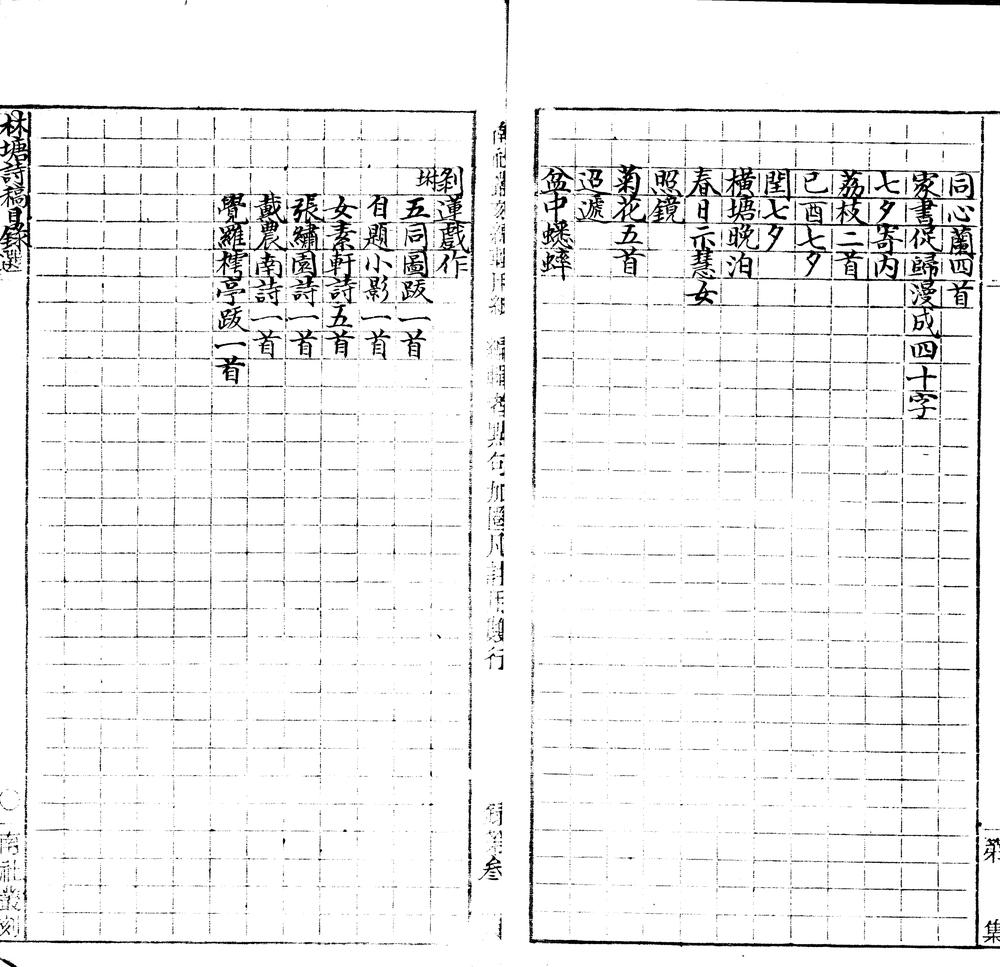 同心蘭四首
家書促歸漫成四十字
七夕寄內
荔枝二首
己酉七夕
閏七夕
橫塘晚泊
春日示慧女
照鏡
菊花五首
迢遞
盆中蟋蟀
剝蓮戲作
坿
五同圖跋一首
自題小影一首
女素軒詩五首
張繡園詩一首
戴農南詩一首
覺羅樗亭跋一首
林塘詩稿目錄選
南社叢刻
集